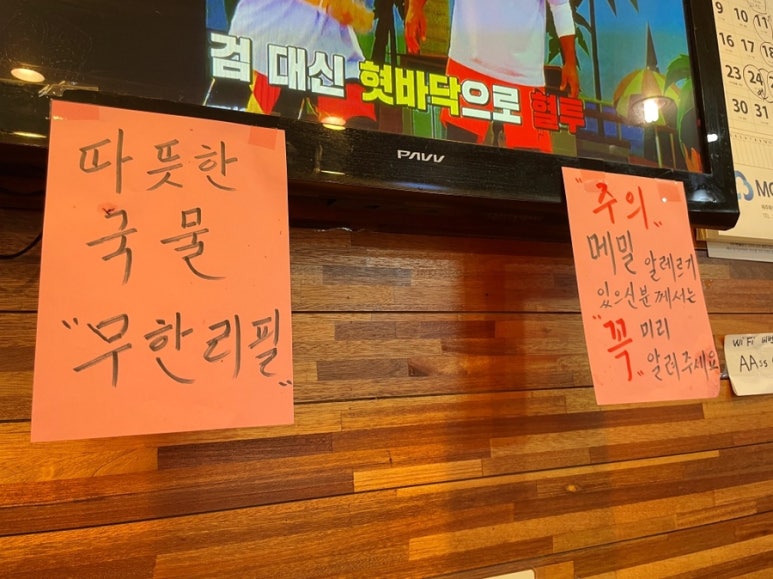 검 대신 혓바닥으로 힐루
PAVV
따뜻한
국물
"무한리필"
"주의"
메밀 알레르기
있으신분께서는
"꼭" 미리
알려주세요
WiFi
9 10 11
16 17 18
23 24
30 31